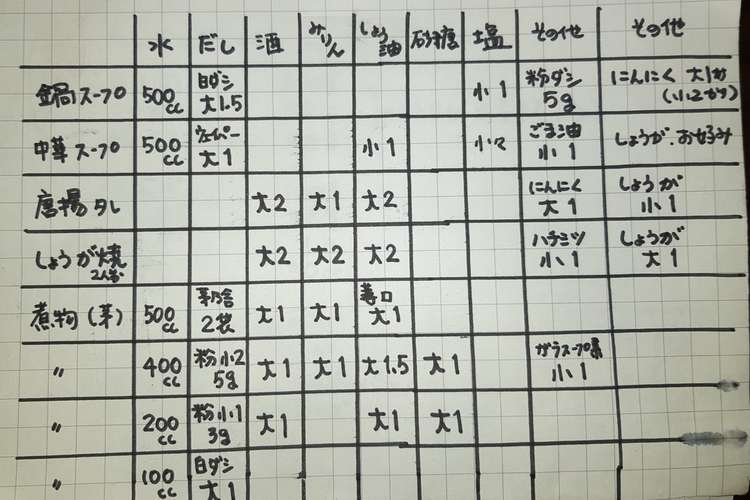 水 だし 酒 みりん しょう油 砂糖 塩 その他 その他
鍋スープ 500cc 白ダシ 大1.5 小1 粉ダシ 5g にんにく 大1
中華スープ 500cc ウェイパー 大1 小1 ごま油 小1 しょうが、お好み
唐揚タレ 大2 大1 大2 にんにく 大1 しょうが 小1
しょうが焼 2人分 大2 大2 大2 ハチミツ 小1 しょうが 大1
煮物(茅) 500cc 茅乃舎 2袋 大1 大1 薄口 大1
〃 400cc 粉小2 5g 大1 大1 大1.5 大1 ガラスープ素 小1
〃 200cc 粉小1 3g 大1 大1 大1
〃 100cc 白ダシ 大1